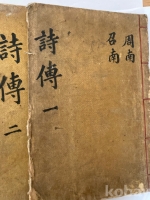 周南
召南
詩傳 一
詩傳 二
koba